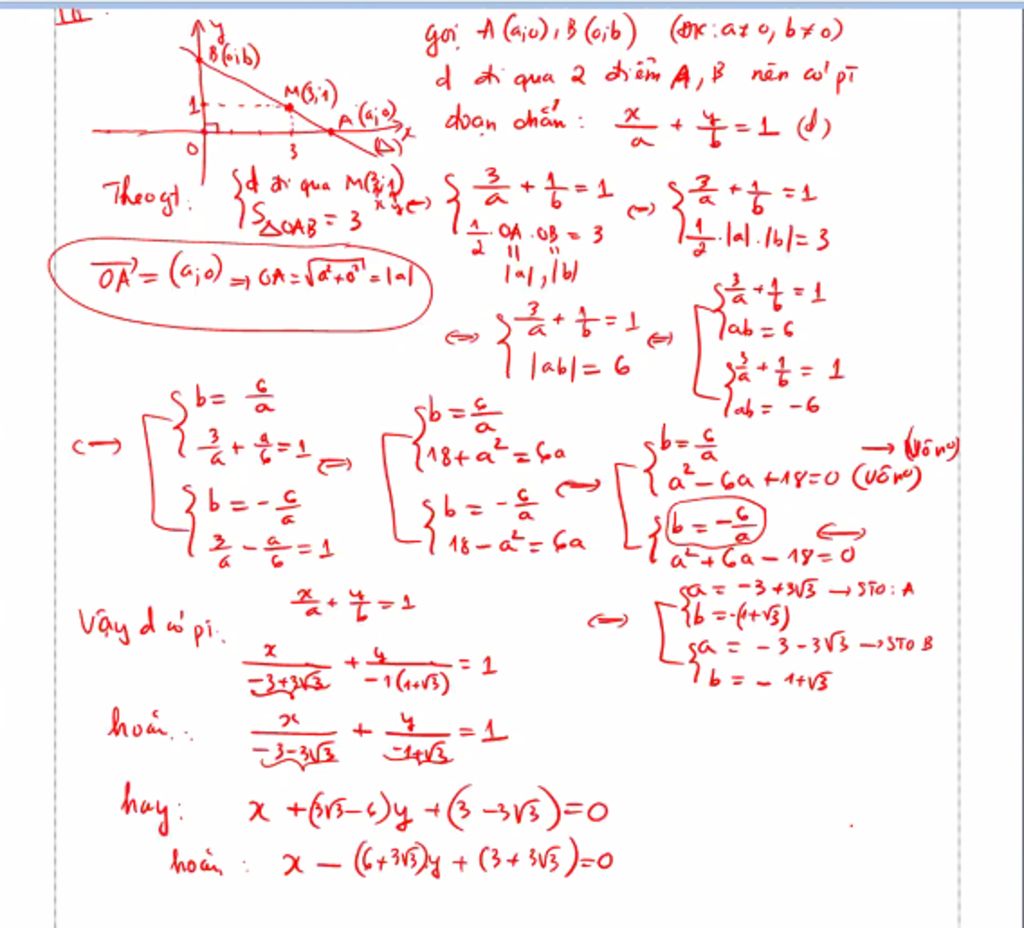 y
B(0;b)
M(3;1)
1
A(a;0)
x
0
3
(Δ)
gọi A(a;0), B(0;b) (ĐK: a ≠ 0, b ≠ 0)
d đi qua 2 điểm A, B nên có pt
đoạn chắn: x/a + y/b = 1 (d)
Theo gt: { d đi qua M(3;1) ; S△OAB = 3 ⇔ { 3/a + 1/b = 1 ; 1/2 . OA . OB = 3 ⇔ { 3/a + 1/b = 1 ; 1/2 . |a| . |b| = 3
x y
|a| , |b|
OA⃗ = (a;0) ⇒ OA = √(a² + 0²) = |a|
⇔ { 3/a + 1/b = 1 ; |ab| = 6 ⇔ [ { 3/a + 1/b = 1 ; ab = 6 ; { 3/a + 1/b = 1 ; ab = -6
⇔ [ { b = 6/a ; 3/a + a/6 = 1 ; { b = -6/a ; 3/a - a/6 = 1
⇔ [ { b = 6/a ; 18 + a² = 6a ; { b = -6/a ; 18 - a² = 6a
⇔ [ { b = 6/a ; a² - 6a + 18 = 0 (Vô no) → (Vô no) ; { b = -6/a ; a² + 6a - 18 = 0 ⇔
⇔ [ { a = -3 + 3√3 → STO: A ; b = -(1+√3) ; { a = -3 - 3√3 → STO B ; b = - 1+√3
x/a + y/b = 1
Vậy d có pt:
x/(-3+3√3) + y/(-1(1+√3)) = 1
hoặc: x/(-3-3√3) + y/(-1+√3) = 1
hay: x + (3√3 - 6)y + (3 - 3√3) = 0
hoặc: x - (6+3√3)y + (3 + 3√3) = 0